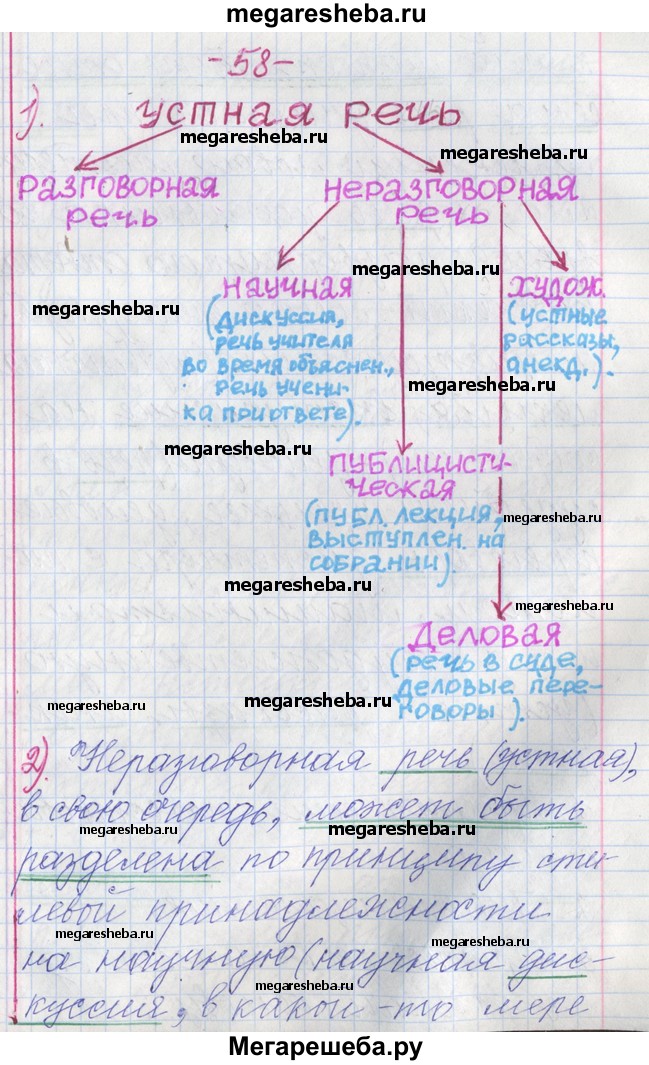 megaresheba.ru
-58-
1). УСТНАЯ РЕЧЬ
megaresheba.ru
megaresheba.ru
РАЗГОВОРНАЯ РЕЧЬ
НЕРАЗГОВОРНАЯ РЕЧЬ
megaresheba.ru
НАУЧНАЯ
(ДИСКУССИЯ,
РЕЧЬ УЧИТЕЛЯ
ВО ВРЕМЯ ОБЪЯСНЕН.,
РЕЧЬ УЧЕНИ-
КА ПРИ ОТВЕТЕ).
ХУДОЖ.
(УСТНЫЕ
РАССКАЗЫ,
АНЕКД.).
megaresheba.ru
megaresheba.ru
megaresheba.ru
ПУБЛИЦИСТИ-
ЧЕСКАЯ
(ПУБЛ. ЛЕКЦИЯ,
ВЫСТУПЛЕН. НА
СОБРАНИИ).
megaresheba.ru
megaresheba.ru
megaresheba.ru
ДЕЛОВАЯ
(РЕЧЬ В СУДЕ,
ДЕЛОВЫЕ ПЕРЕ-
ГОВОРЫ).
megaresheba.ru
megaresheba.ru
2). Неразговорная речь (устная),
в свою очередь, может быть
megaresheba.ru
megaresheba.ru
разделена по принципу сти-
левой принадлежности
megaresheba.ru
megaresheba.ru
на научную (научная дис-
куссия, в какой-то мере
megaresheba.ru
megaresheba.ru
Мегарешеба.ру